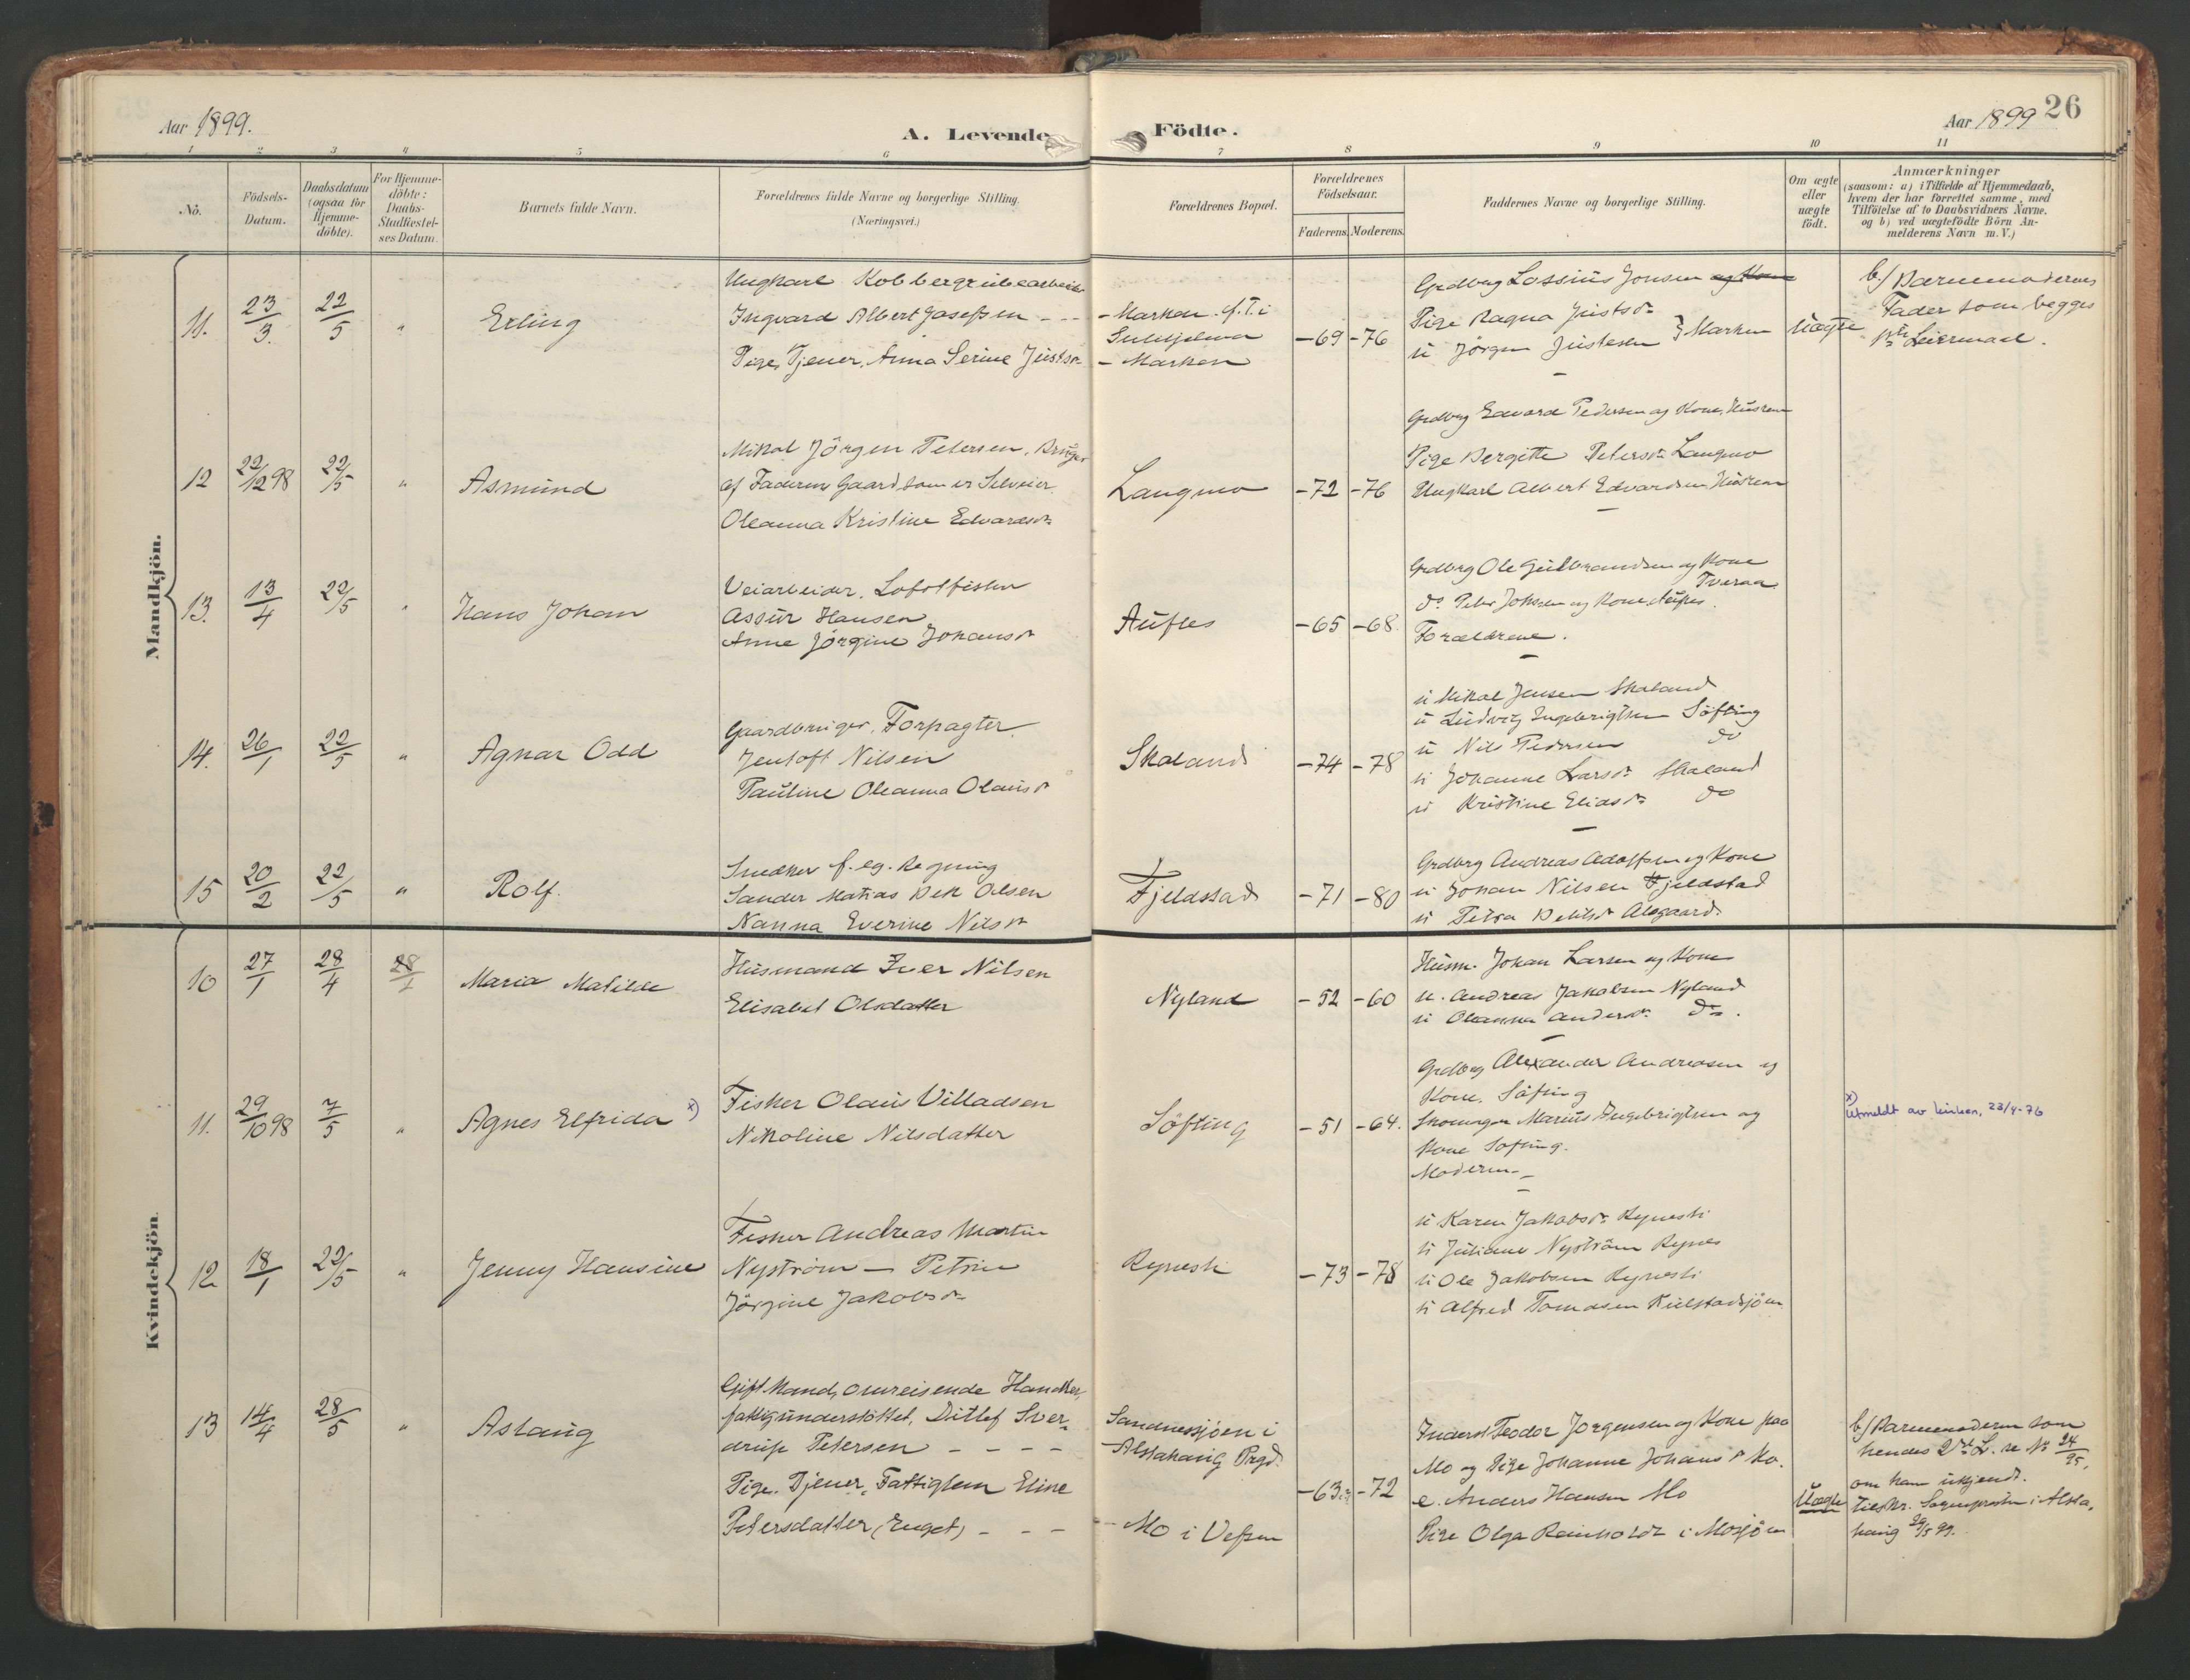 Aar 1899.
A. Levende Födte.
Aar 1899
26
1 2 3 4 5 6 7 8 9 10 11
No.
Födsels-
Datum.
Daabsdatum
(ogsaa for
Hjemme-
döbte).
For Hjemme-
döbte:
Daabs-
Stadfæstel-
ses Datum.
Barnets fulde Navn.
Forældrenes fulde Navne og borgerlige Stilling.
(Næringsvei.)
Forældrenes Bopæl.
Forældrenes
Födselsaar.
Faderens. Moderens.
Faddernes Navne og borgerlige Stilling.
Om ægte
eller
uægte
födt.
Anmærkninger
(saasom: a) i Tilfælde af Hjemmedaab,
hvem der har forrettet samme, med
Tilföielse af to Daabsvidners Navne,
og b) ved uægtefödte Börn An-
melderens Navn m. V.)
Mandkjön.
11. 23/3 22/5 " Erling
Ungkarl Kobbergrubearbeider
Ingvard Albert Josefsen - -
Pige, Tjener, Anna Serine Justsdr
- Marken p.T. i
Sulitjelma
- Marken
-69 -76
Grdbrg Lossius Jonsen og Kone
Pige Ragna Justsdr
u Jörgen Justesen } Marken
Uægte
b./ Barnemoderens
Fader som begges
1ste Leiermaal.
12 22/12 98 22/5 " Asmund
Mikal Jörgen Petersen, Bruger
af Faderens Gaard som er Selveier
Oleanna Kristine Edvardsdr
Langmo
-72 -76
Grdbrg Edvard Pedersen og Kone, Husrem
Pige Bergitte Petersdr Langmo
Ungkarl Albert Edvardsen Husrem
13. 13/4 22/5 " Hans Johan
Veiarbeider, Lofotfisker
Assur Hansen
Anne Jörgine Johansdr
Aufles
-65 -68
Grdbrg Ole Gulbrandsen og Kone
Tveraa
do Peter Johnsen og Kone Aufles.
Forældrene.
14. 26/1 22/5 " Agnar Odd
Gaardbruger, Forpagter
Jentoft Nilsen
Pauline Oleanna Olausdr
Skaland
-74 -78
u Mikal Jensen Skaland
u Ludvig Ingebrigtsen Söfting
u Nils Pedersen do
u Johanne Larsdr Skaland
u Kristine Eliasdr do
15 20/2 22/5 " Rolf
Snedker f. eg. Regning
Sander Matias Bek Olsen
Nanna Everine Nilsdr
Fjeldstad
-71 -80
Grdbrg Andreas Adolfsen og Kone
u Johan Nilsen Fjeldstad
u Petra Alsgaard.
Kvindekjön.
10 27/1 28/4 28/1 Maria Matilde
Husmand Iver Nilsen
Elisabet Olsdatter
Nyland
-52 -60
Husm. Johan Larsen og Kone
u. Andreas Jakobsen Nyland
u Oleanna Andersdr do.
11. 29/10 98 7/5 " Agnes Elfrida x)
Fisker Olaus Villadsen
Nikoline Nilsdatter
Söfting
-51 -64.
Grdbrg Alexander Andreasen og
Kone, Söfting
Skomager Marius Ingebrigtsen og
Kone Söfting.
Moderen -
x)
Utmeldt av kirken, 23/4-76
12 18/1 22/5 " Jenny Hansine
Fisker Andreas Martin
Nyström - Petrine
Jörgine Jakobsdr
Rynesli
-73 -78
u Karen Jakobsdr Rynesli
u Juliane Nyström Rynes
u Ole Jakobsen Rynesli
u Alfred Tomasen Kulstadsjöen
13 14/4 28/5 " Aslaug
Gift Mand, omreisende Handler,
fattigunderstöttet, Ditlef Sver-
drup Petersen - - - -
Pige. Tjener, Fattiglem Eline
Petersdatter (Enget) - - -
Sandnessjöen i
- Alstahaug Prgd.
- Mo i Vefsen
-63 -72
Inderst Teodor Jörgensen og Kone paa
Mo og Pige Johanne Johansdr Mo.
e. Anders Hansen Mo
Pige Olga Reinholdt i Mosjöen
Uægte
b/ Barnemoderen som
hendes 2det L. se No 24/95,
om ham ukjendt.
Tilskr. Sogneprsten i Alsta-
haug 29/5 99.